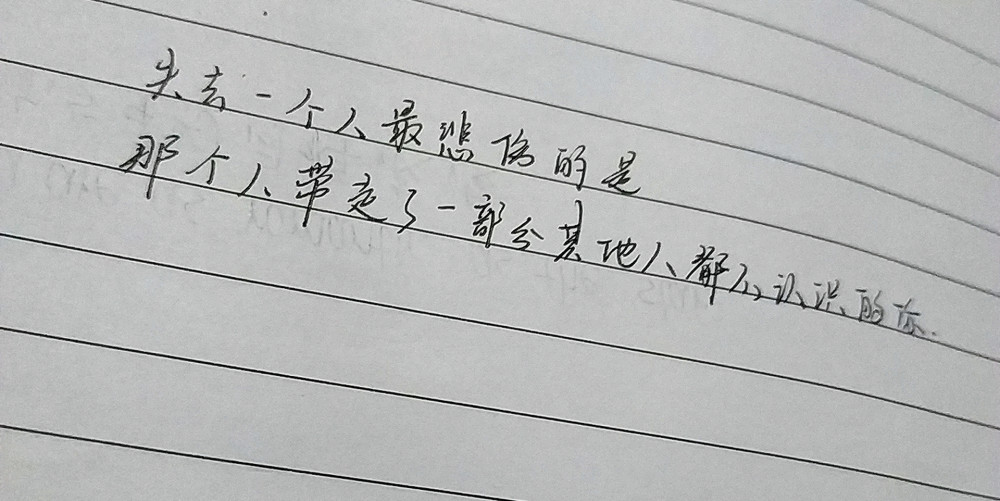 失去一个人最悲伤的是
那个人带走了一部分其他人都不认识的你.